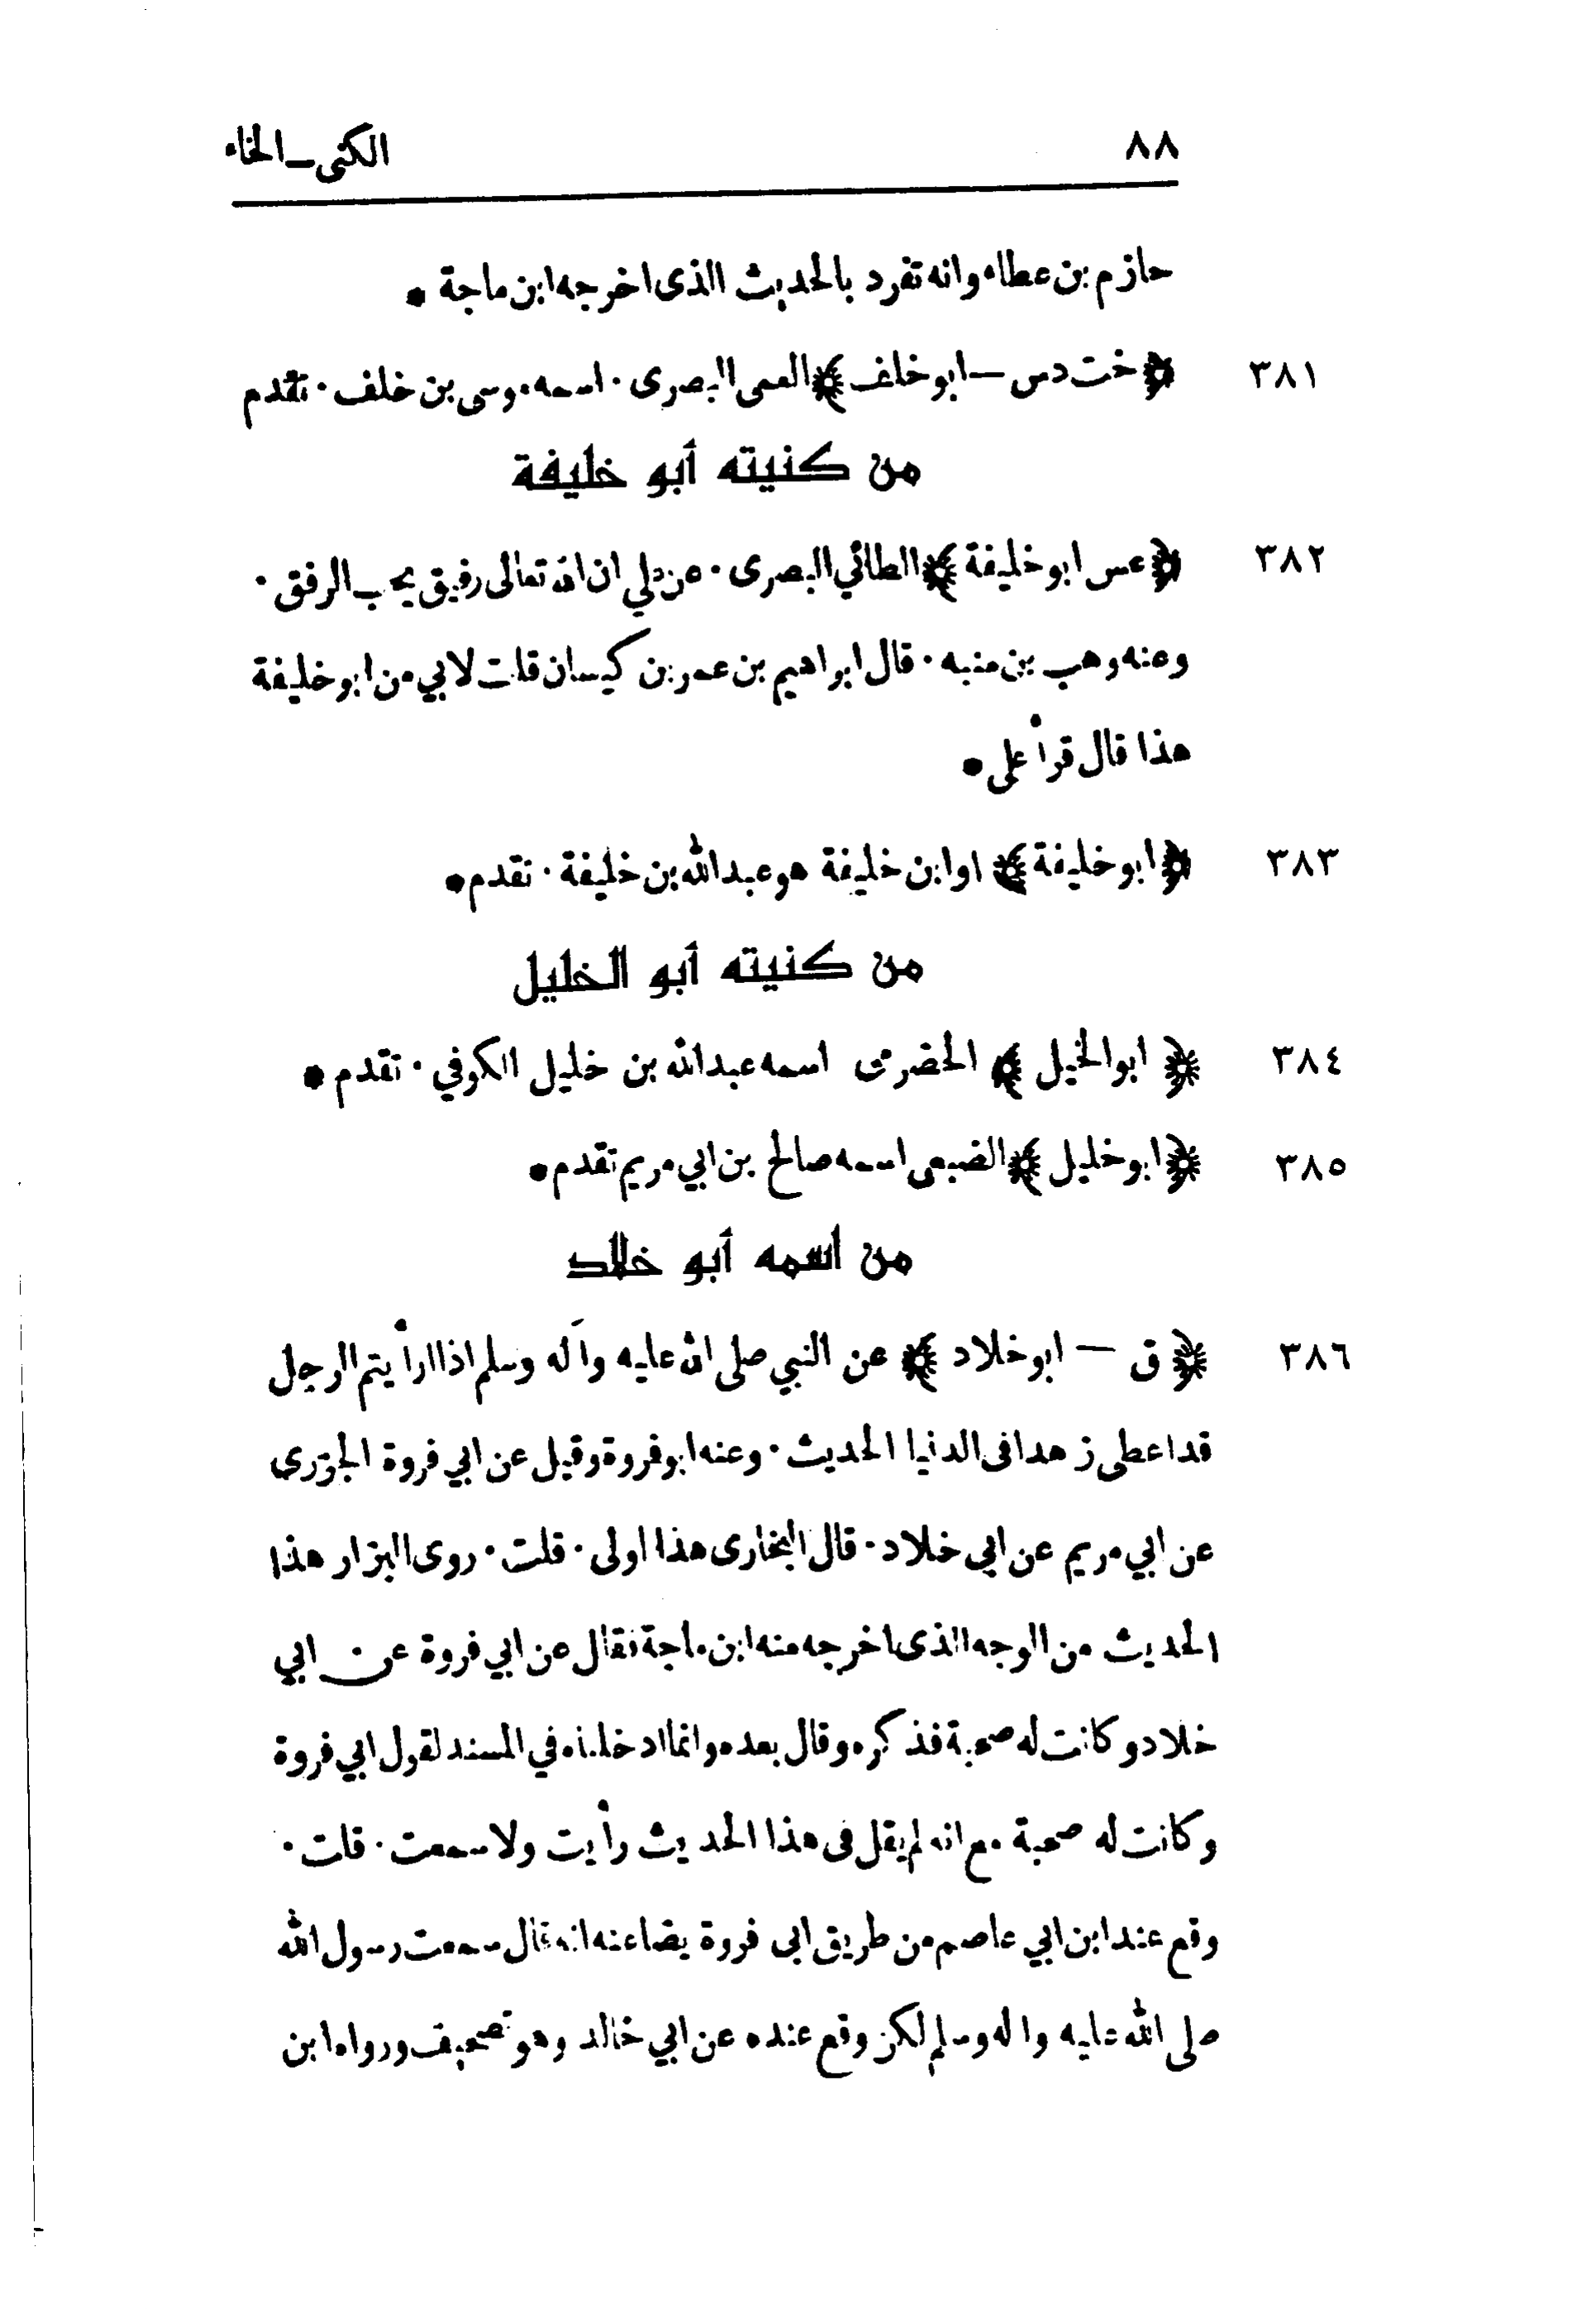 ٨٨ الكنى ـ الخاء
حازم بن عطاء وانه تفرد بالحديث الذى اخرجه ابن ماجة *
٣٨١ ﴿ خت دس — ابو خلف ﴾ العمى البصرى · اسمه موسى بن خلف · تقدم
من كنيته أبو خليفة
٣٨٢ ﴿ عس ابو خليفة ﴾ الطائي البصرى · عن علي ان الله تعالى رفيق يحب الرفق ·
وعنه وهب بن منبه · قال ابراهيم بن عمر بن كيسان قلت لابي من ابو خليفة
هذا قال قرأ على *
٣٨٣ ﴿ ابو خليفة ﴾ او ابن خليفة هو عبد الله بن خليفة · تقدم *
من كنيته أبو الخليل
٣٨٤ ﴿ ابو الخليل ﴾ الحضرمى اسمه عبد الله بن خليل الكوفي · تقدم *
٣٨٥ ﴿ ابو خليل ﴾ الضبعى اسمه صالح بن ابي مريم تقدم *
من اسمه أبو خلاد
٣٨٦ ﴿ ق — ابو خلاد ﴾ عن النبي صلى الله عليه وآله وسلم اذا ارأيتم الرجل
قد اعطى زهدا فى الدنيا الحديث · وعنه ابو فروة وقيل عن ابي فروة الجزرى
عن ابي مريم عن ابي خلاد · قال البخارى هذا اولى · قلت · روى البزار هذا
الحديث من الوجه الذى اخرجه منه ابن ماجة فقال عن ابي فروة عن ابي
خلاد و كانت له صحبة فذكره وقال بعده وانما ادخلناه في المسند لقول ابي فروة
وكانت له صحبة مع انه لم يقل فى هذا الحديث رأيت ولا سمعت · قلت ·
وقع عند ابن ابي عاصم من طريق ابى فروة يضا عنه انه قال سمعت رسول الله
صلى الله عليه واله وسلم لكن وقع عنده عن ابي خالد وهو تصحيف ورواه ابن